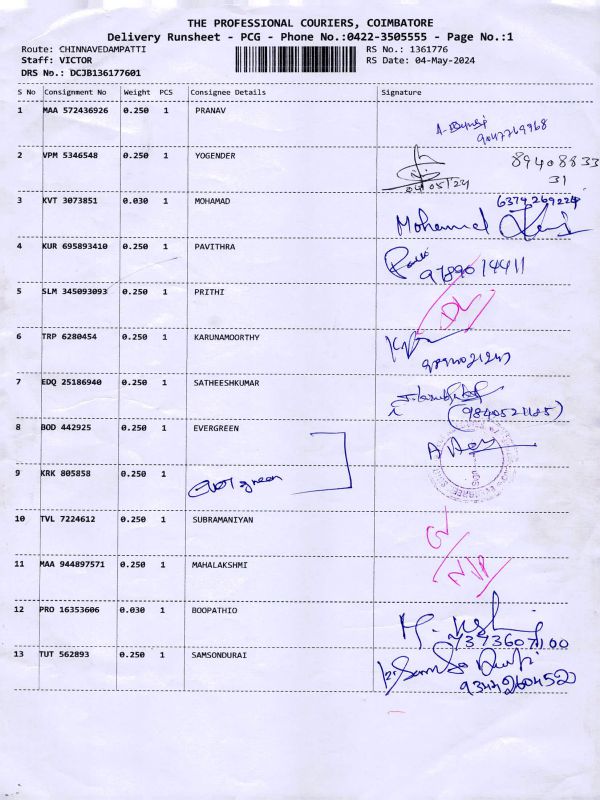 THE PROFESSIONAL COURIERS, COIMBATORE
Delivery Runsheet - PCG - Phone No.:0422-3505555 - Page No.:1
Route: CHINNAVEDAMPATTI RS No.: 1361776
Staff: VICTOR RS Date: 04-May-2024
DRS No.: DCJB136177601
S No Consignment No Weight PCS Consignee Details Signature
1 MAA 572436926 0.250 1 PRANAV
9047769968
2 VPM 5346548 0.250 1 YOGENDER 89408833
04/05/24 31
3 KVT 3073851 0.030 1 MOHAMAD 6374269224
Mohamed
4 KUR 695893410 0.250 1 PAVITHRA
9789014411
5 SLM 345093093 0.250 1 PRITHI
DL
6 TRP 6280454 0.250 1 KARUNAMOORTHY
7 EDQ 25186940 0.250 1 SATHEESHKUMAR
(9840521185)
8 BOD 442925 0.250 1 EVERGREEN
9 KRK 805858 0.250 1 Evergreen
10 TVL 7224612 0.250 1 SUBRAMANIYAN
11 MAA 944897571 0.250 1 MAHALAKSHMI
12 PRO 16353606 0.030 1 BOOPATHIO
7373607100
13 TUT 562893 0.250 1 SAMSONDURAI
9344260452